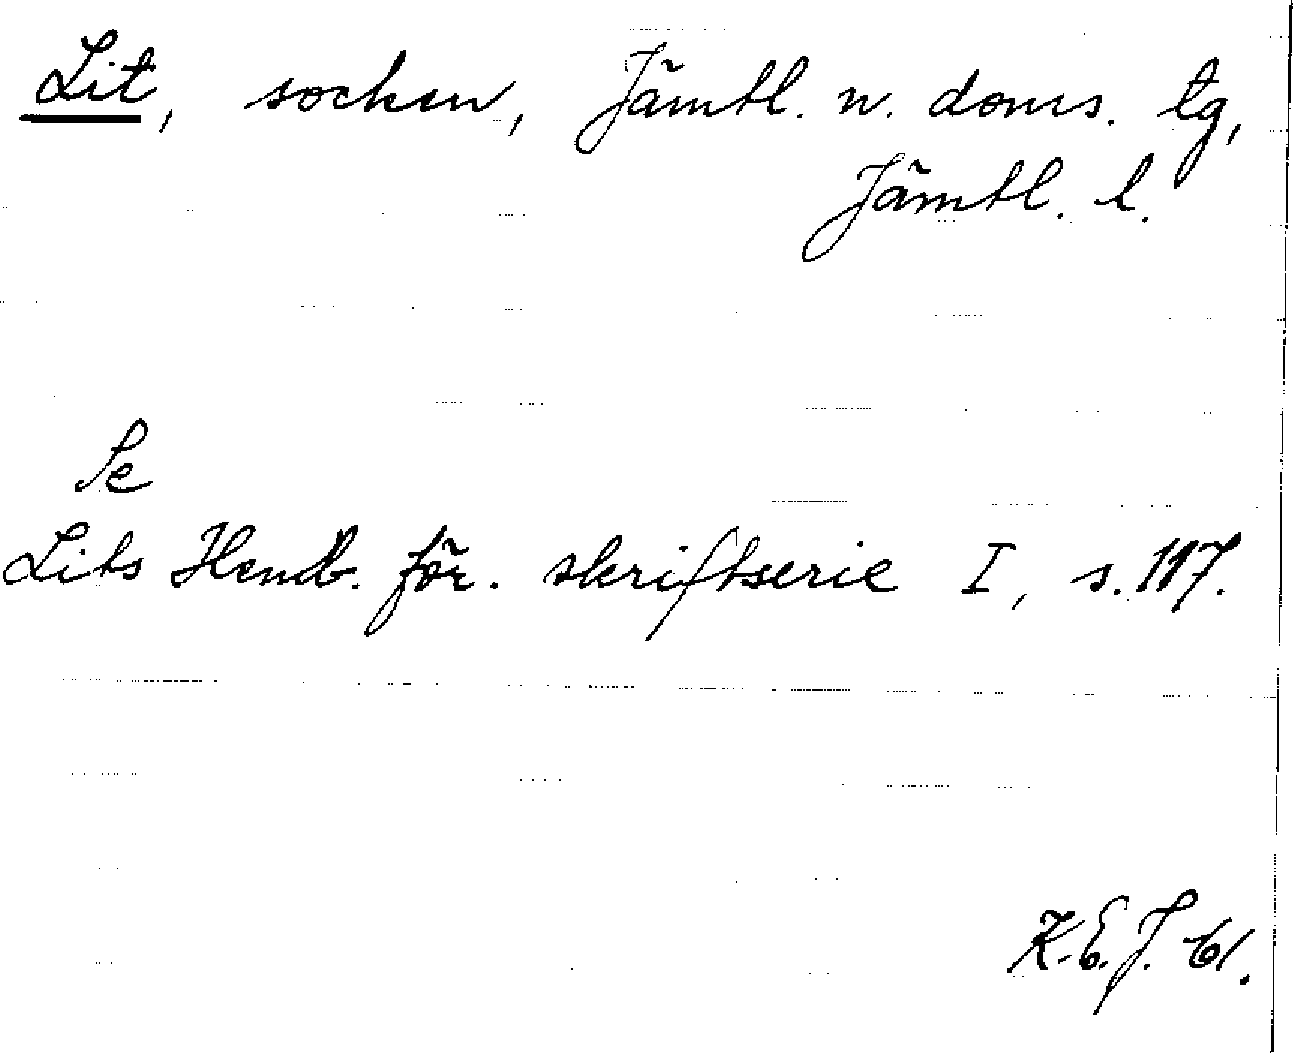 Lit, socken, Jämtl. n. doms. tg,
Jämtl. l.
Se
Lits Hemb. för. skriftserie I, s. 117.
K.E.J. 61.